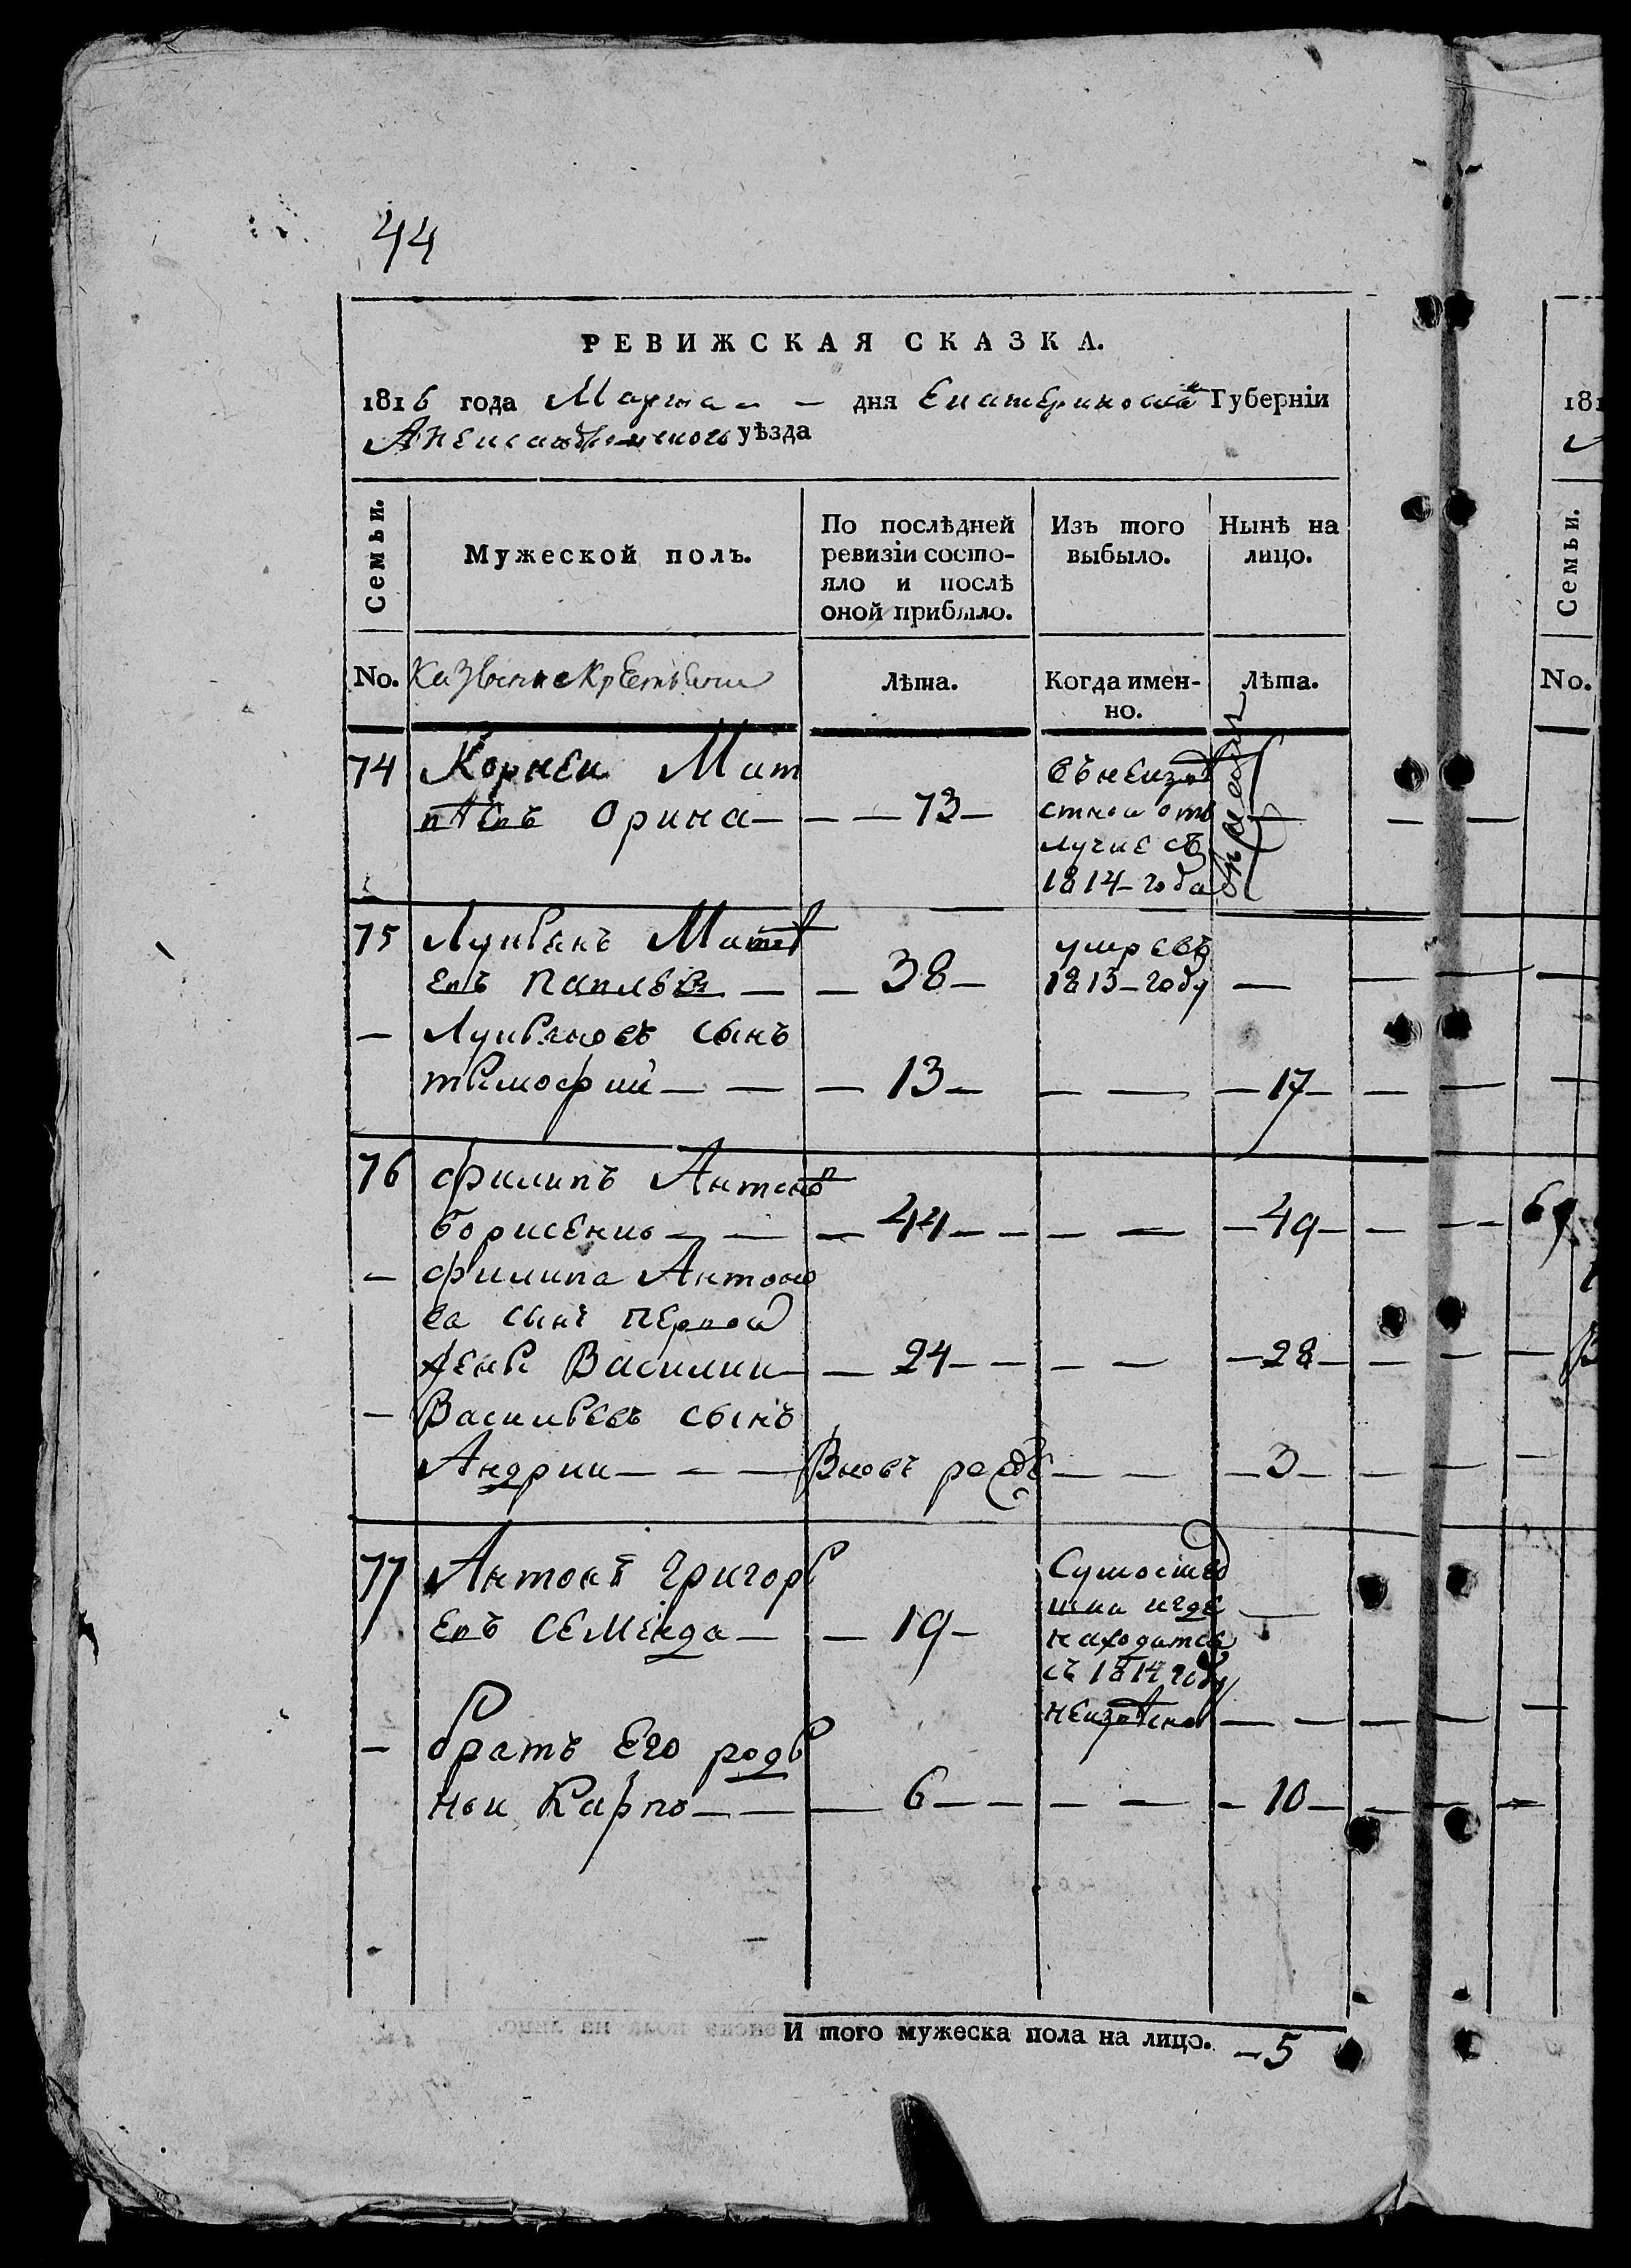 44
РЕВИЖСКАЯ СКАЗКА.
1816 года Марта дня Екатериносла Губерніи
Александрійского уѣзда
Семьи.
Мужеской полъ.
По послѣдней ревизіи состо-
яло и послѣ
оной прибыло.
Изъ того
выбыло.
Нынѣ на
лицо.
No. Казенне Крестьяни
лѣта.
Когда имен-
но.
лѣта.
74 Корней Мат
вѣевъ Орина — 73 —
въ неизвѣ
стной отъ
лучке съ
1814 — года
75 Лукьянъ Матвѣ
евъ — 38 —
умре въ
1813 — году —
— Лукьяновъ сынъ
тимофий — 13 — — 17 —
76 филипъ Антоно
борисенко — 44 — — 49 —
— филипа Антоно
ва сынъ первой
жены Василии — 24 — — 28 —
— Васильевъ сынъ
Андрии — Вновь рожд — 3 —
77 Антонъ григорь
евъ семенда — 19 —
игде
находится
съ 1814 году
неизвѣсно —
— братъ Его родь
нои Карпъ — 6 — — 10 —
И того мужеска пола на лицо. — 5
181
Семьи.
No.
69